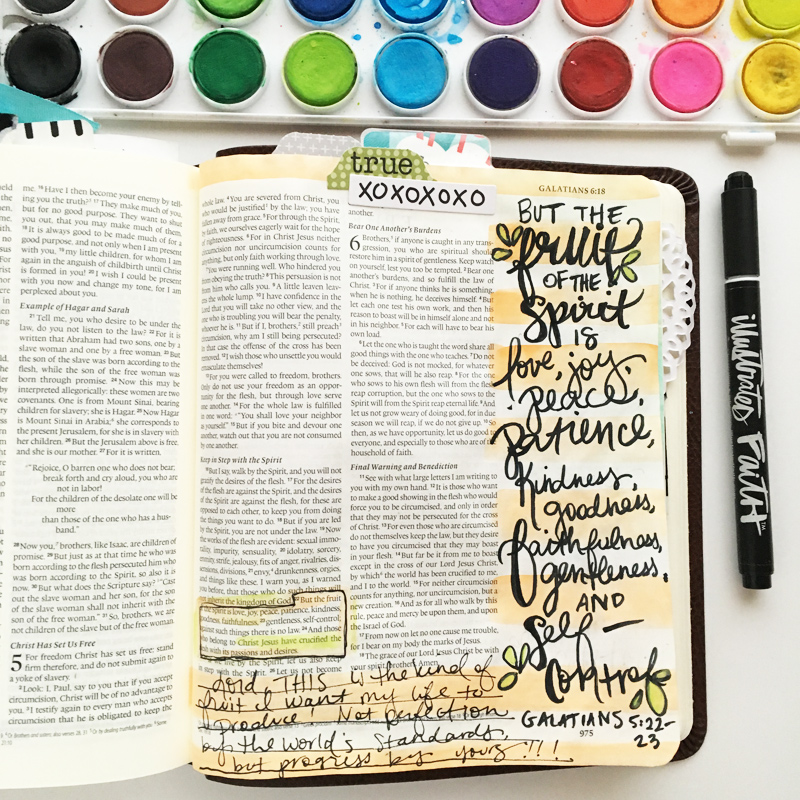 me. 16 Have I then become your enemy by tell-
ing you the truth? 17 They make much of you,
but for no good purpose. They want to shut
you out, that you may make much of them.
18 It is always good to be made much of for a
good purpose, and not only when I am present
with you, 19 my little children, for whom I am
again in the anguish of childbirth until Christ
is formed in you! 20 I wish I could be present
with you now and change my tone, for I am
perplexed about you.
Example of Hagar and Sarah
21 Tell me, you who desire to be under the
law, do you not listen to the law? 22 For it is
written that Abraham had two sons, one by a
slave woman and one by a free woman. 23 But
the son of the slave was born according to the
flesh, while the son of the free woman was
born through promise. 24 Now this may be
interpreted allegorically: these women are two
covenants. One is from Mount Sinai, bearing
children for slavery; she is Hagar. 25 Now Hagar
is Mount Sinai in Arabia; she corresponds to
the present Jerusalem, for she is in slavery with
her children. 26 But the Jerusalem above is free,
and she is our mother. 27 For it is written,
"Rejoice, O barren one who does not bear;
break forth and cry aloud, you who are
not in labor!
For the children of the desolate one will be
more
than those of the one who has a hus-
band."
28 Now you, brothers, like Isaac, are children of
promise. 29 But just as at that time he who was
born according to the flesh persecuted him who
was born according to the Spirit, so also it is
now. 30 But what does the Scripture say? "Cast
out the slave woman and her son, for the son
of the slave woman shall not inherit with the
son of the free woman." 31 So, brothers, we are
not children of the slave but of the free woman.
Christ Has Set Us Free
5 For freedom Christ has set us free; stand
firm therefore, and do not submit again to
a yoke of slavery.
2 Look: I, Paul, say to you that if you accept
circumcision, Christ will be of no advantage to
you. 3 I testify again to every man who accepts
circumcision that he is obligated to keep the
true
xoxoxoxo
whole law. 4 You are severed from Christ, you
who would be justified by the law; you have
fallen away from grace. 5 For through the Spirit,
by faith, we ourselves eagerly wait for the hope
of righteousness. 6 For in Christ Jesus neither
circumcision nor uncircumcision counts for
anything, but only faith working through love.
7 You were running well. Who hindered you
from obeying the truth? 8 This persuasion is not
from him who calls you. 9 A little leaven leav-
ens the whole lump. 10 I have confidence in the
Lord that you will take no other view, and the
one who is troubling you will bear the penalty,
whoever he is. 11 But if I, brothers, still preach
circumcision, why am I still being persecuted?
In that case the offense of the cross has been
removed. 12 I wish those who unsettle you would
emasculate themselves!
13 For you were called to freedom, brothers.
Only do not use your freedom as an oppor-
tunity for the flesh, but through love serve
one another. 14 For the whole law is fulfilled
in one word: "You shall love your neighbor
as yourself." 15 But if you bite and devour one
another, watch out that you are not consumed
by one another.
Keep in Step with the Spirit
16 But I say, walk by the Spirit, and you will not
gratify the desires of the flesh. 17 For the desires
of the flesh are against the Spirit, and the desires
of the Spirit are against the flesh, for these are
opposed to each other, to keep you from doing
the things you want to do. 18 But if you are led
by the Spirit, you are not under the law. 19 Now
the works of the flesh are evident: sexual immo-
rality, impurity, sensuality, 20 idolatry, sorcery,
enmity, strife, jealousy, fits of anger, rivalries, dis-
sensions, divisions, 21 envy, drunkenness, orgies,
and things like these. I warn you, as I warned
you before, that those who do such things will
not inherit the kingdom of God. 22 But the fruit
of the Spirit is love, joy, peace, patience, kindness,
goodness, faithfulness, 23 gentleness, self-control;
against such things there is no law. 24 And those
who belong to Christ Jesus have crucified the
flesh with its passions and desires.
25 If we live by the Spirit, let us also keep
in step with the Spirit. 26 Let us not become
GALATIANS 6:18
another.
Bear One Another's Burdens
6 Brothers, if anyone is caught in any trans-
gression, you who are spiritual should
restore him in a spirit of gentleness. Keep watch
on yourself, lest you too be tempted. 2 Bear one
another's burdens, and so fulfill the law of
Christ. 3 For if anyone thinks he is something,
when he is nothing, he deceives himself. 4 But
let each one test his own work, and then his
reason to boast will be in himself alone and not
in his neighbor. 5 For each will have to bear his
own load.
6 Let the one who is taught the word share all
good things with the one who teaches. 7 Do not
be deceived: God is not mocked, for whatever
one sows, that will he also reap. 8 For the one
who sows to his own flesh will from the flesh
reap corruption, but the one who sows to the
Spirit will from the Spirit reap eternal life. 9 And
let us not grow weary of doing good, for in due
season we will reap, if we do not give up. 10 So
then, as we have opportunity, let us do good to
everyone, and especially to those who are of the
household of faith.
Final Warning and Benediction
11 See with what large letters I am writing to
you with my own hand. 12 It is those who want
to make a good showing in the flesh who would
force you to be circumcised, and only in order
that they may not be persecuted for the cross
of Christ. 13 For even those who are circumcised
do not themselves keep the law, but they desire
to have you circumcised that they may boast
in your flesh. 14 But far be it from me to boast
except in the cross of our Lord Jesus Christ,
by which the world has been crucified to me,
and I to the world. 15 For neither circumcision
counts for anything, nor uncircumcision, but a
new creation. 16 And as for all who walk by this
rule, peace and mercy be upon them, and upon
the Israel of God.
17 From now on let no one cause me trouble,
for I bear on my body the marks of Jesus.
18 The grace of our Lord Jesus Christ be with
your spirit, brothers. Amen.
BUT THE
fruit
OF THE
Spirit
is
love, joy,
peace,
patience,
kindness,
goodness,
faithfulness,
gentleness,
AND
self-
control
GALATIANS 5:22-
23
975
Lord, THIS is the kind of
fruit I want my life to
produce! Not perfection
by the world's standards,
but progress by yours!!!
illustrated FAITH™